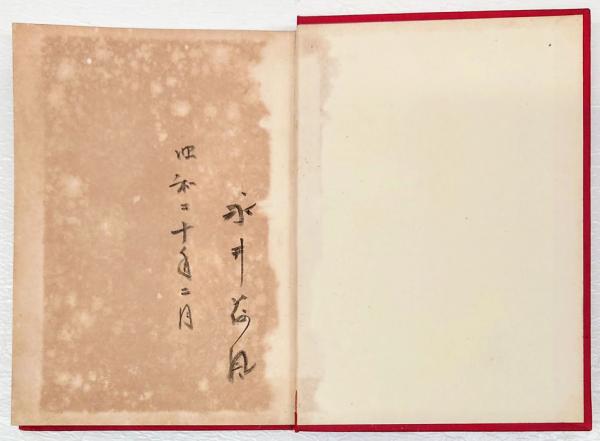 永井荷風
昭和二十年二月